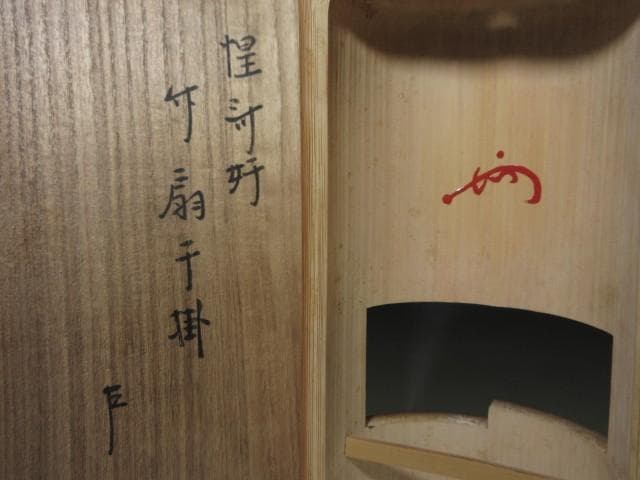 惺斎好
竹扇子掛